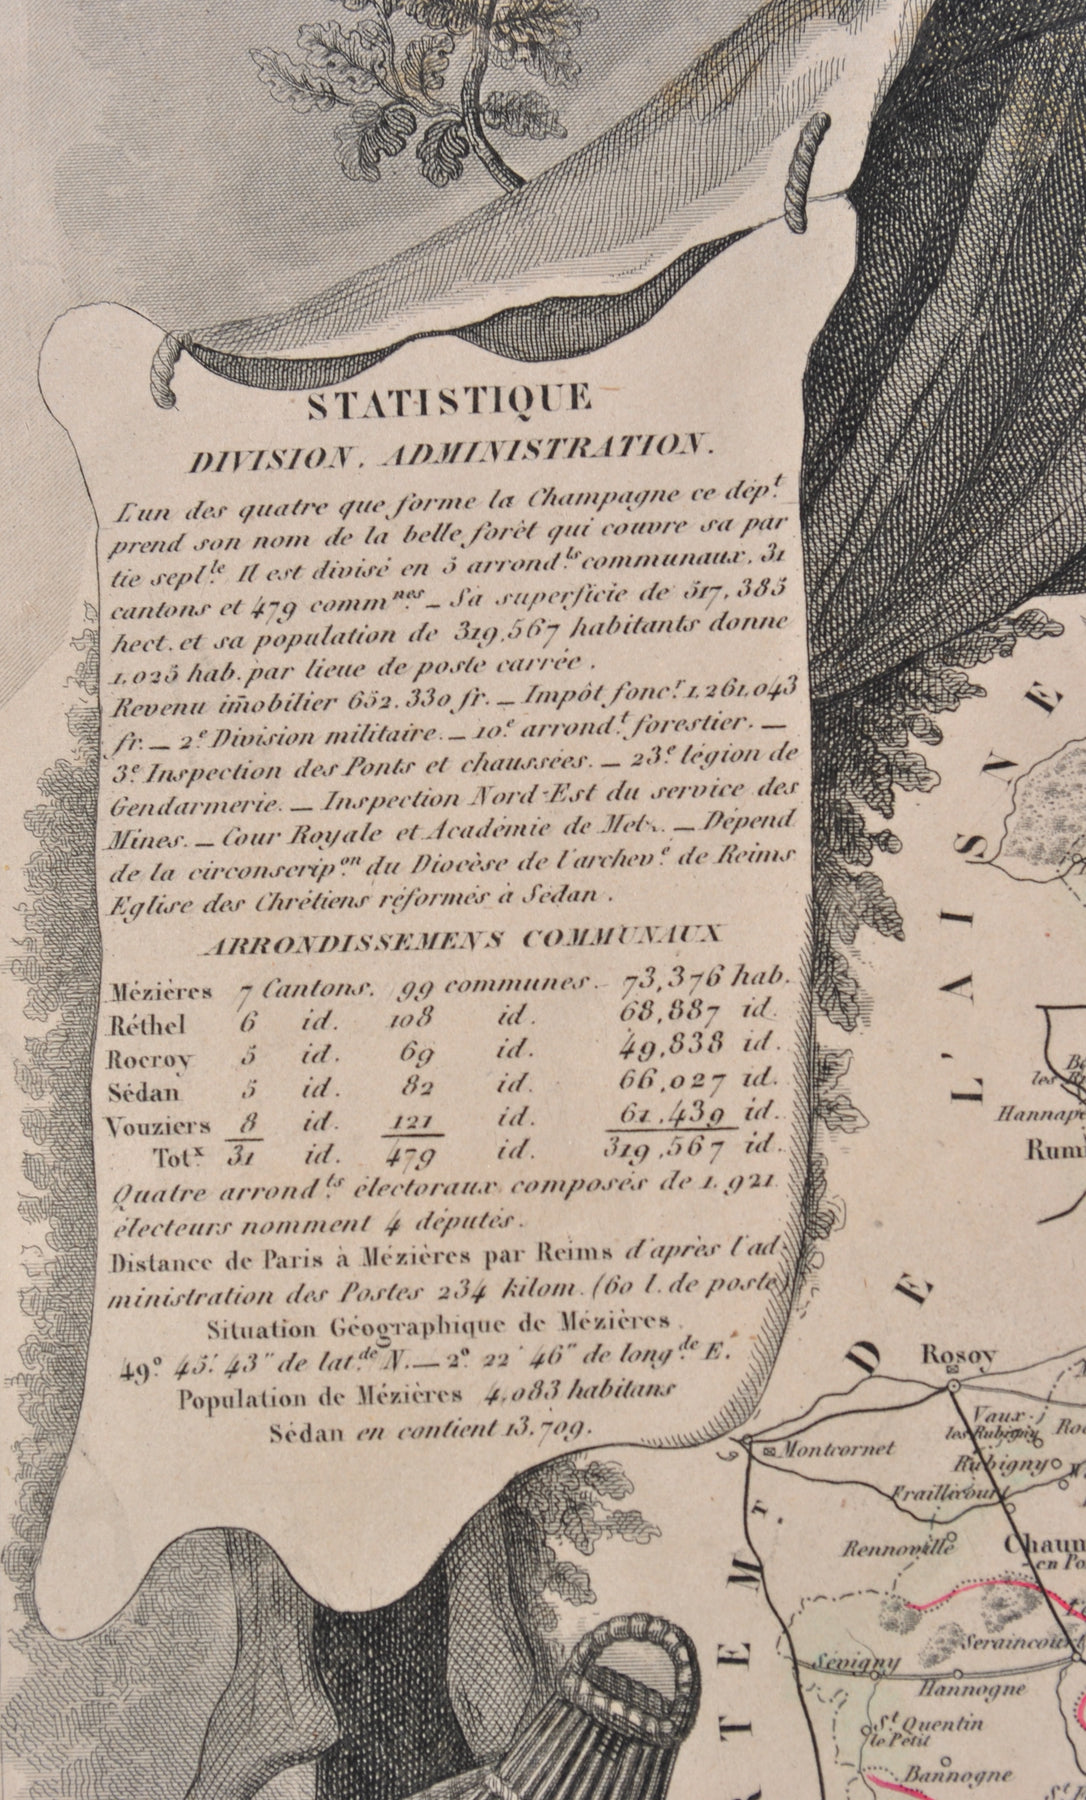 STATISTIQUE
DIVISION, ADMINISTRATION.
L'un des quatre que forme la Champagne ce dépt.
prend son nom de la belle forêt qui couvre sa par
tie septle. Il est divisé en 5 arrondts. communaux, 31
cantons et 479 commnes. _ Sa superficie de 517,385
hect. et sa population de 319,567 habitants donne
1,025 hab. par lieue de poste carrée.
Revenu im̄obilier 652.330 fr. _ Impôt foncr. 1,261,043
fr. _ 2e. Division militaire. _ 10e. arrondt. forestier. _
3e. Inspection des Ponts et chaussées. _ 23e. légion de
Gendarmerie. _ Inspection Nord-Est du service des
Mines. _ Cour Royale et Académie de Metz. _ Dépend
de la circonscripon. du Diocèse de l'archevé. de Reims
Eglise des Chrétiens réformés à Sédan.
ARRONDISSEMENS COMMUNAUX
Mézières 7 Cantons. 99 communes. 73,376 hab.
Réthel 6 id. 108 id. 68,887 id.
Rocroy 5 id. 69 id. 49,838 id.
Sédan 5 id. 82 id. 66,027 id.
Vouziers 8 id. 121 id. 61,439 id.
Totx. 31 id. 479 id. 319,567 id.
Quatre arrondts. électoraux composés de 1,921
électeurs nomment 4 députés.
Distance de Paris à Mézières par Reims d'après l'ad
ministration des Postes 234 kilom. (60 l. de poste)
Situation Géographique de Mézières.
49°. 45'. 43" de latde. N. _ 2°. 22' 46" de longde. E.
Population de Mézières 4,083 habitans
Sédan en contient 13,709.
L'AISNE
DE
Hannap
Rum
Rosoy
Vaux-
les Rubigny
Montcornet
Rubigny
Fraillicourt
Rennoville
Chaum
en Po
Seraincourt
Sévigny
Hannogne
St. Quentin
le Petit
Bannogne
TEM